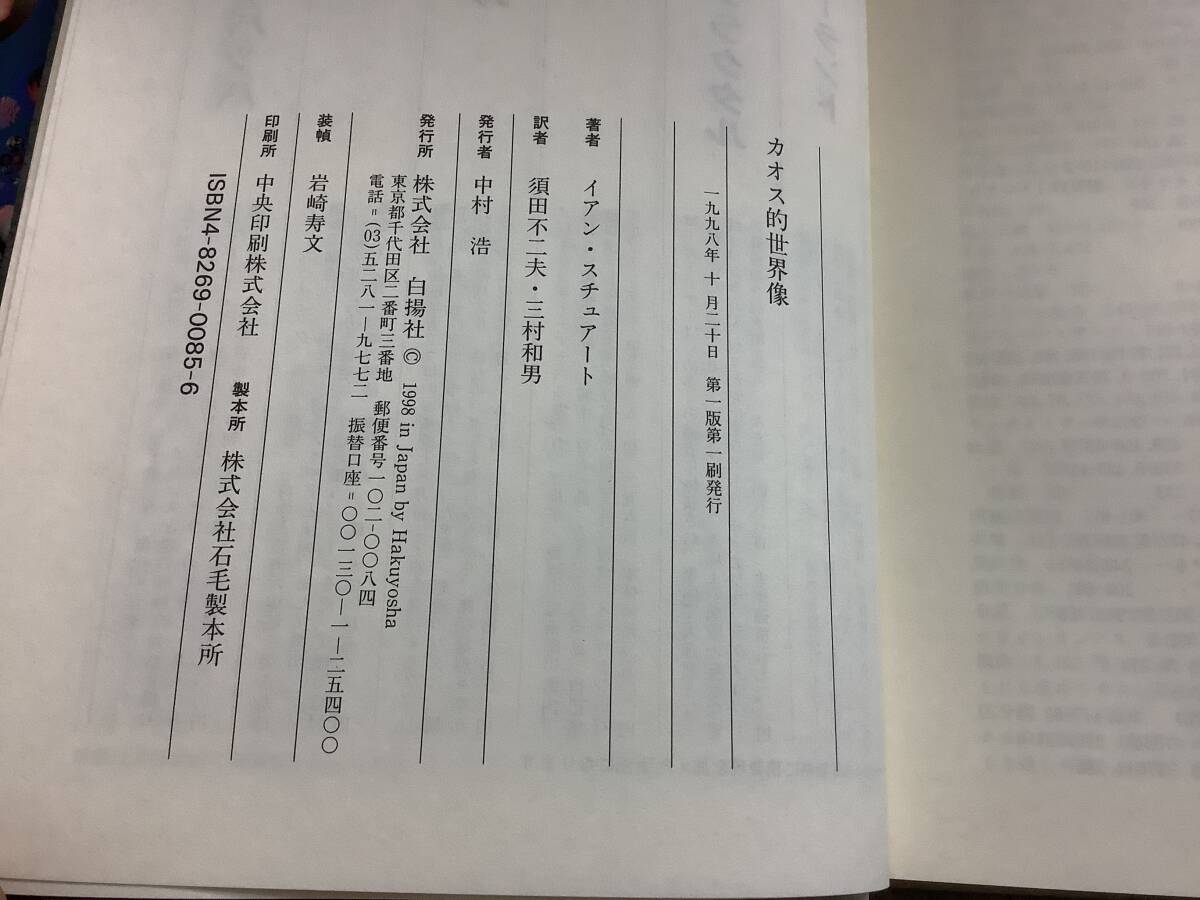 カオス的世界像
一九九八年 十 月二十日 第一版第一刷発行
著者 イアン・スチュアート
訳者 須田不二夫・三村和男
発行者 中村 浩
発行所 株式会社 白揚社 © 1998 in Japan by Hakuyosha
東京都千代田区二番町三番地 郵便番号一〇二-〇〇八四
電話=(03)五二八一―九七七二 振替口座=〇〇一三〇―一―二五四〇〇
装幀 岩崎寿文
印刷所 中央印刷株式会社 製本所 株式会社石毛製本所
ISBN4-8269-0085-6